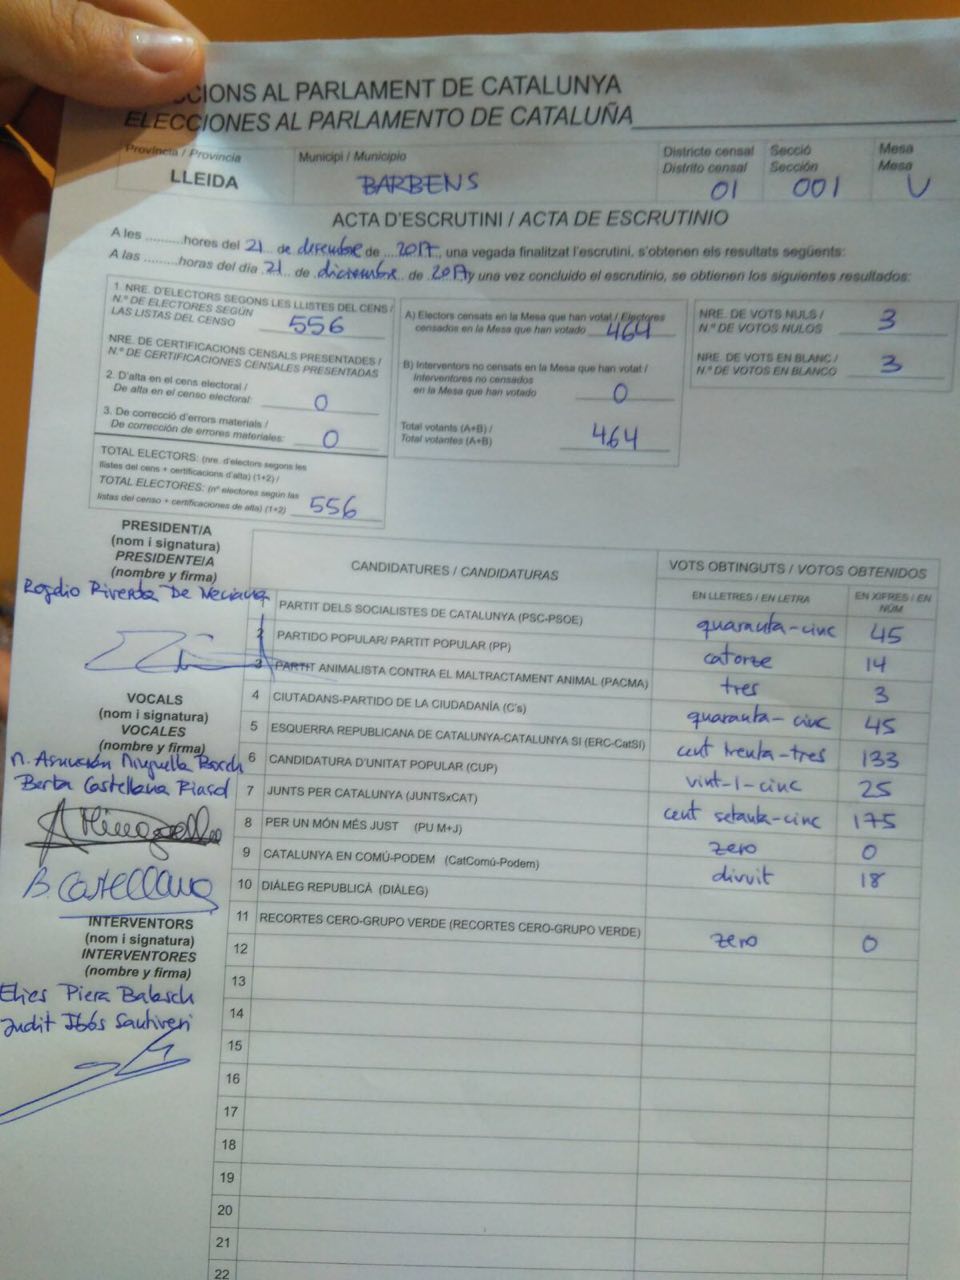 CIONS AL PARLAMENT DE CATALUNYA
ELECCIONES AL PARLAMENTO DE CATALUÑA
Província / Provincia
LLEIDA
Municipi / Municipio
BARBENS
Districte censal
Distrito censal
01
Secció
Sección
001
Mesa
Mesa
U
ACTA D'ESCRUTINI / ACTA DE ESCRUTINIO
A les ..........hores del 21 de desembre de 2017, una vegada finalitzat l'escrutini, s'obtenen els resultats següents:
A las ..........horas del día 21 de diciembre de 2017 y una vez concluido el escrutinio, se obtienen los siguientes resultados:
1. NRE. D'ELECTORS SEGONS LES LLISTES DEL CENS /
N.º DE ELECTORES SEGÚN
LAS LISTAS DEL CENSO 556
NRE. DE CERTIFICACIONS CENSALS PRESENTADES /
N.º DE CERTIFICACIONES CENSALES PRESENTADAS
2. D'alta en el cens electoral /
De alta en el censo electoral: 0
3. De correcció d'errors materials /
De corrección de errores materiales: 0
TOTAL ELECTORS: (nre. d'electors segons les
llistes del cens + certificacions d'alta) (1+2) /
TOTAL ELECTORES: (nº electores según las
listas del censo + certificaciones de alta) (1+2) 556
A) Electors censats en la Mesa que han votat / Electores
censados en la Mesa que han votado 464
B) Interventors no censats en la Mesa que han votat /
Interventores no censados
en la Mesa que han votado 0
Total votants (A+B) /
Total votantes (A+B) 464
NRE. DE VOTS NULS /
N.º DE VOTOS NULOS 3
NRE. DE VOTS EN BLANC /
N.º DE VOTOS EN BLANCO 3
PRESIDENT/A
(nom i signatura)
PRESIDENTE/A
(nombre y firma)
Rogelio De
VOCALS
(nom i signatura)
VOCALES
(nombre y firma)
M. Asunción Minguella Bosch
Berta Castellana
B. Castellana
INTERVENTORS
(nom i signatura)
INTERVENTORES
(nombre y firma)
Elies Piera Balasch
Judit
CANDIDATURES / CANDIDATURAS
VOTS OBTINGUTS / VOTOS OBTENIDOS
EN LLETRES / EN LETRA
EN XIFRES / EN NÚM
1 PARTIT DELS SOCIALISTES DE CATALUNYA (PSC-PSOE) quaranta-cinc 45
2 PARTIDO POPULAR/ PARTIT POPULAR (PP) catorze 14
3 PARTIT ANIMALISTA CONTRA EL MALTRACTAMENT ANIMAL (PACMA) tres 3
4 CIUTADANS-PARTIDO DE LA CIUDADANÍA (C's) quaranta-cinc 45
5 ESQUERRA REPUBLICANA DE CATALUNYA-CATALUNYA SÍ (ERC-CatSí) cent trenta-tres 133
6 CANDIDATURA D'UNITAT POPULAR (CUP) vint-i-cinc 25
7 JUNTS PER CATALUNYA (JUNTSxCAT) cent setanta-cinc 175
8 PER UN MÓN MÉS JUST (PU M+J) zero 0
9 CATALUNYA EN COMÚ-PODEM (CatComú-Podem) divuit 18
10 DIÀLEG REPUBLICÀ (DIÀLEG)
11 RECORTES CERO-GRUPO VERDE (RECORTES CERO-GRUPO VERDE) zero 0
12
13
14
15
16
17
18
19
20
21
22